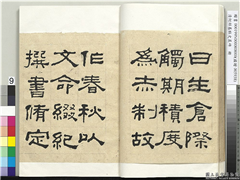 曰生倉際
觸期稽度
為赤制故
作春秋以
文命綴紀
撰書脩定
9